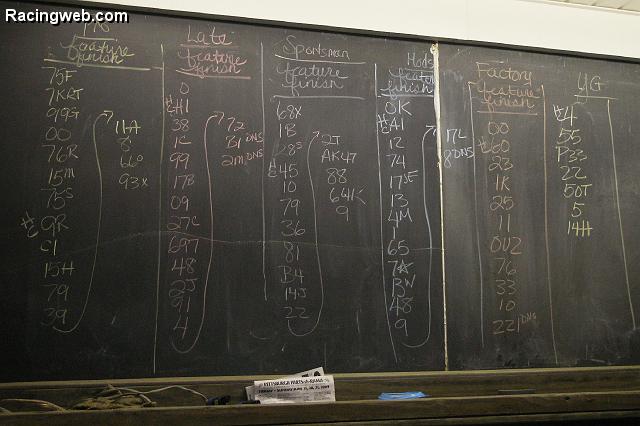 Racingweb.com
FS
feature
finish
75F
7KRT
99G
00
76R
15M
75S
H/C 9R
C1
15H
79
39
11A
8
660
93X
Late
feature
finish
0
H/C H1
38
1C
99
17B
09
27C
697
48
2J
91
4
72
B1 DNS
2M DNS
Sportsman
feature
finish
68X
1B
28S
H/C 45
10
79
36
81
B4
14J
22
2J
AK47
88
641K
9
Mods
feature
finish
0K
H/C A1
12
74
175F
13
4M
1
65
7A
BW
48
9
17L
8 DNS
Factory
feature
finish
00
H/C 60
23
1K
25
11
0U2
76
33
10
22 DNS
YG
H/C 4
55
P33
22
50T
5
14H
PITTSBURGH PARTS-A-RAMA